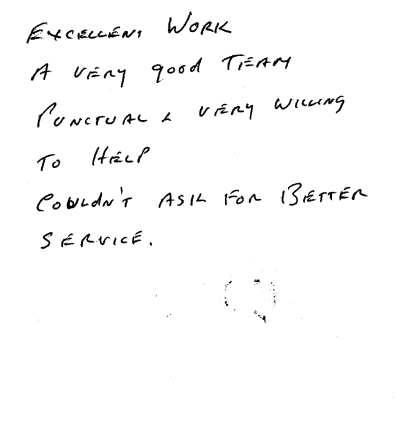 EXCELLENT WORK
A VERY good TEAM
PUNCTUAL & VERY WILLING
TO HELP
COULDN'T ASK FOR BETTER
SERVICE.